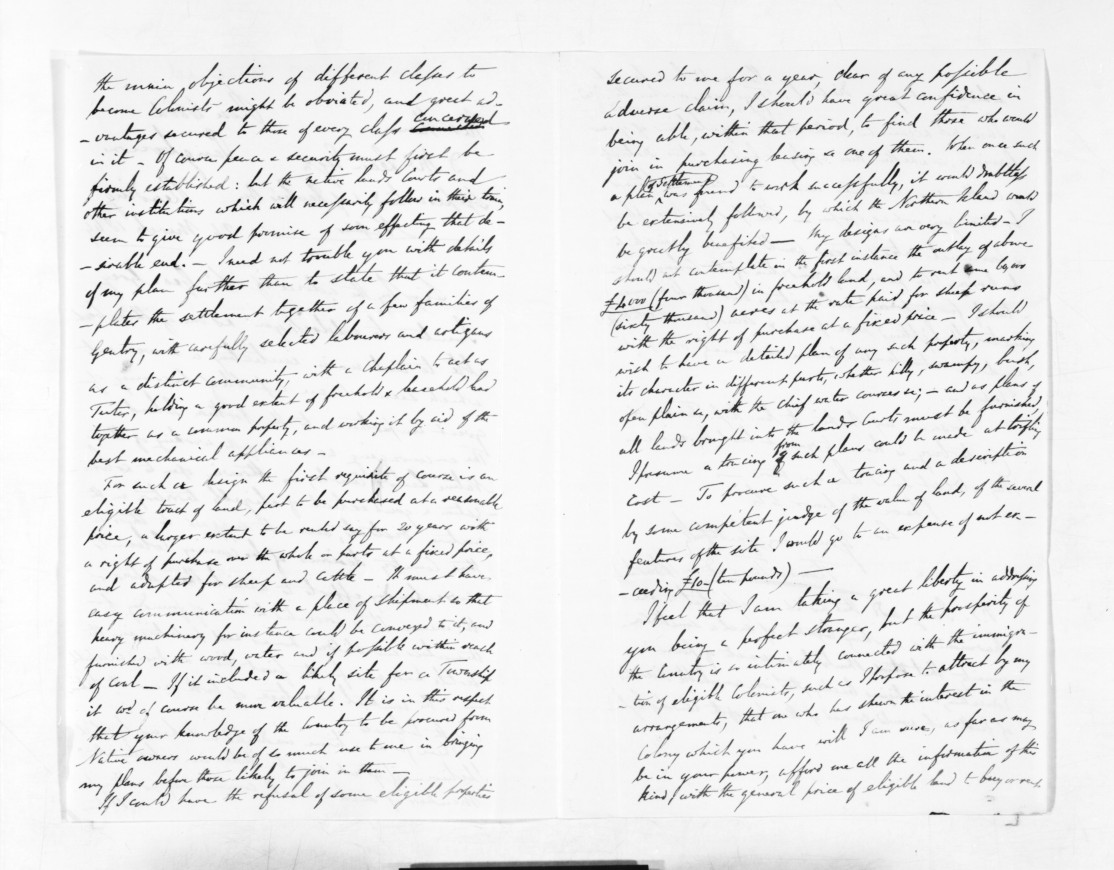 the main objections of different classes to
become Colonists might be obviated, and great ad-
-vantages secured to those of every class concerned
in it - Of course peace & security must first be
firmly established: but the native lands Courts and
other institutions which will necessarily follow in their train,
seem to give good promise of soon effecting that de-
-sirable end. - I need not trouble you with details
of my plan further than to state that it contem-
-plates the settlement together of a few families of
Gentry, with carefully selected labourers and artizans
as a distinct community, with a Chaplain to act as
Tutor, holding a good extent of freehold & leasehold land
together as a common property, and working it by aid of the
best mechanical appliances -
For such a design the first requisite of course is an
eligible tract of land, part to be purchased at a reasonable
price, a larger extent to be rented say for 20 years with
a right of purchase over the whole or parts at a fixed price,
and adapted for sheep and cattle - It must have
easy communication with a place of shipment so that
heavy machinery for instance could be conveyed to it, and
furnished with wood, water and if possible within reach
of coal - If it included a likely site for a Township
it wd of course be more valuable. It is in this respect
that your knowledge of the Country to be procured from
Native owners would be of so much use to me in bringing
my plans before those likely to join in them -
If I could have the refusal of some eligible properties
secured to me for a year, clear of any possible
adverse claim, I should have great confidence in
being able, within that period, to find those who would
join in purchasing leasing one of them. When once such
a plan of settlement was found to work successfully, it would doubtless
be extensively followed, by which the Northern Island would
be greatly benefited - My designs are very limited - I
should not contemplate in the first instance the outlay of above
(four thousand) in freehold land, and to rent some
(sixty thousand) acres at the rate paid for sheep runs
with the right of purchase at a fixed price - I should
wish to have a detailed plan of any such property, marking
its character in different parts, whether hilly, swampy, bush,
open plain &c, with the chief water courses &c; - and as plans of
all lands brought into the lands Courts must be furnished
I presume a tracing from such plans could be made at trifling
cost - To procure such a tracing and a description
by some competent judge of the value of land, of the several
features of the site I would go to an expense of not ex-
-ceeding £10 - (ten pounds) -
I feel that I am taking a great liberty in addressing
you being a perfect stranger, but the prosperity of
the Country is so intimately connected with the immigra-
-tion of eligible Colonists, such as I propose to attract by my
arrangements, that one who has shewn the interest in the
Colony which you have will I am sure, as far as may
be in your power, afford me all the information of this
kind, with the general price of eligible land to buy or rent